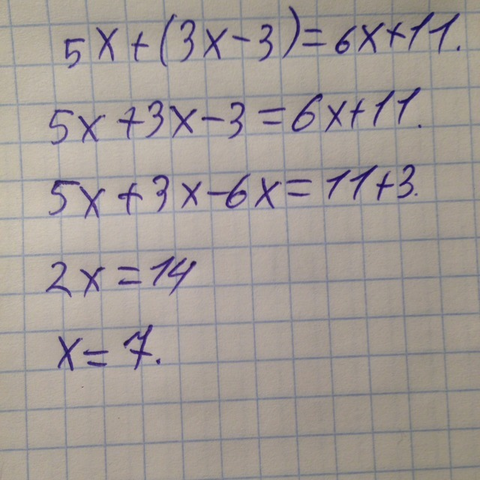 5x+(3x-3)=6x+11.
5x+3x-3=6x+11.
5x+3x-6x=11+3.
2x=14
x=7.